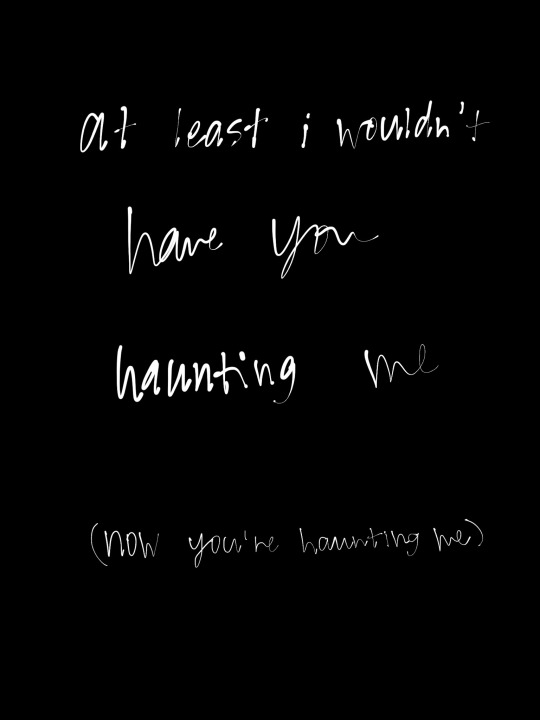 at least i wouldn't
have you
haunting me
(now you're haunting me)